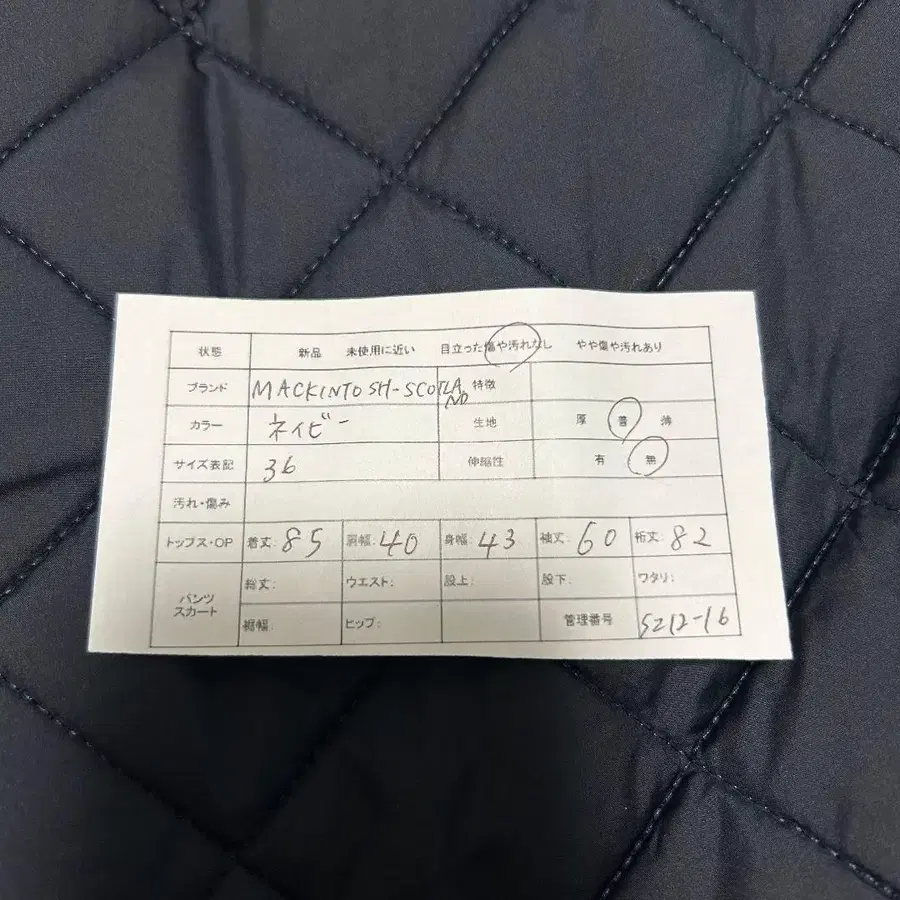 状態 新品 未使用に近い 目立った傷や汚れなし やや傷や汚れあり
ブランド MACKINTOSH-SCOTLAND 特徴
カラー ネイビー 生地 厚 普 薄
サイズ表記 36 伸縮性 有 無
汚れ・傷み
トップス・OP 着丈: 85 肩幅: 40 身幅: 43 袖丈: 60 裄丈: 82
パンツ スカート 総丈: ウエスト: 股上: 股下: ワタリ:
裾幅: ヒップ: 管理番号 S212-16